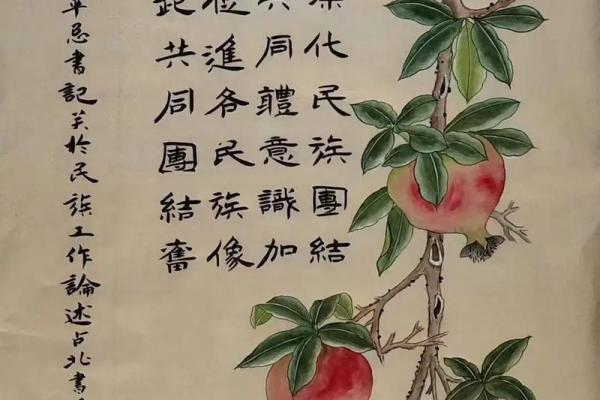 深化民族團結
共同體意識加
促進各民族像
起共同團結奮
平总書記关於民族工作論述占北書